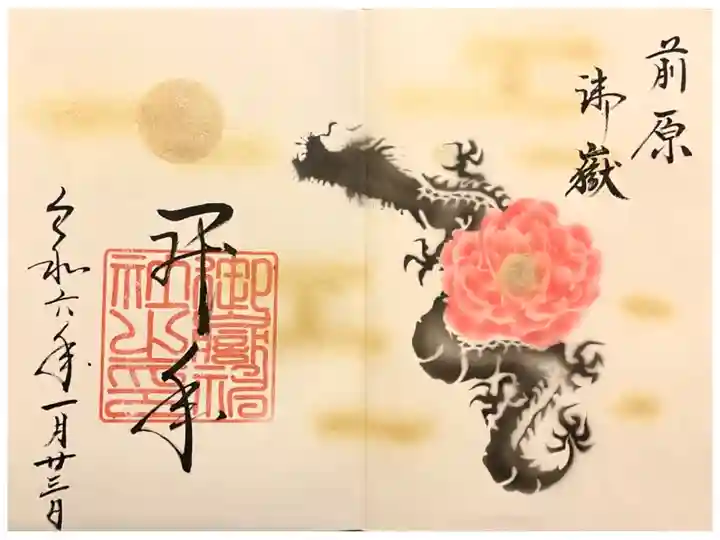 前原
御嶽
拝
御嶽神
社之印
令和六年一月廿三日